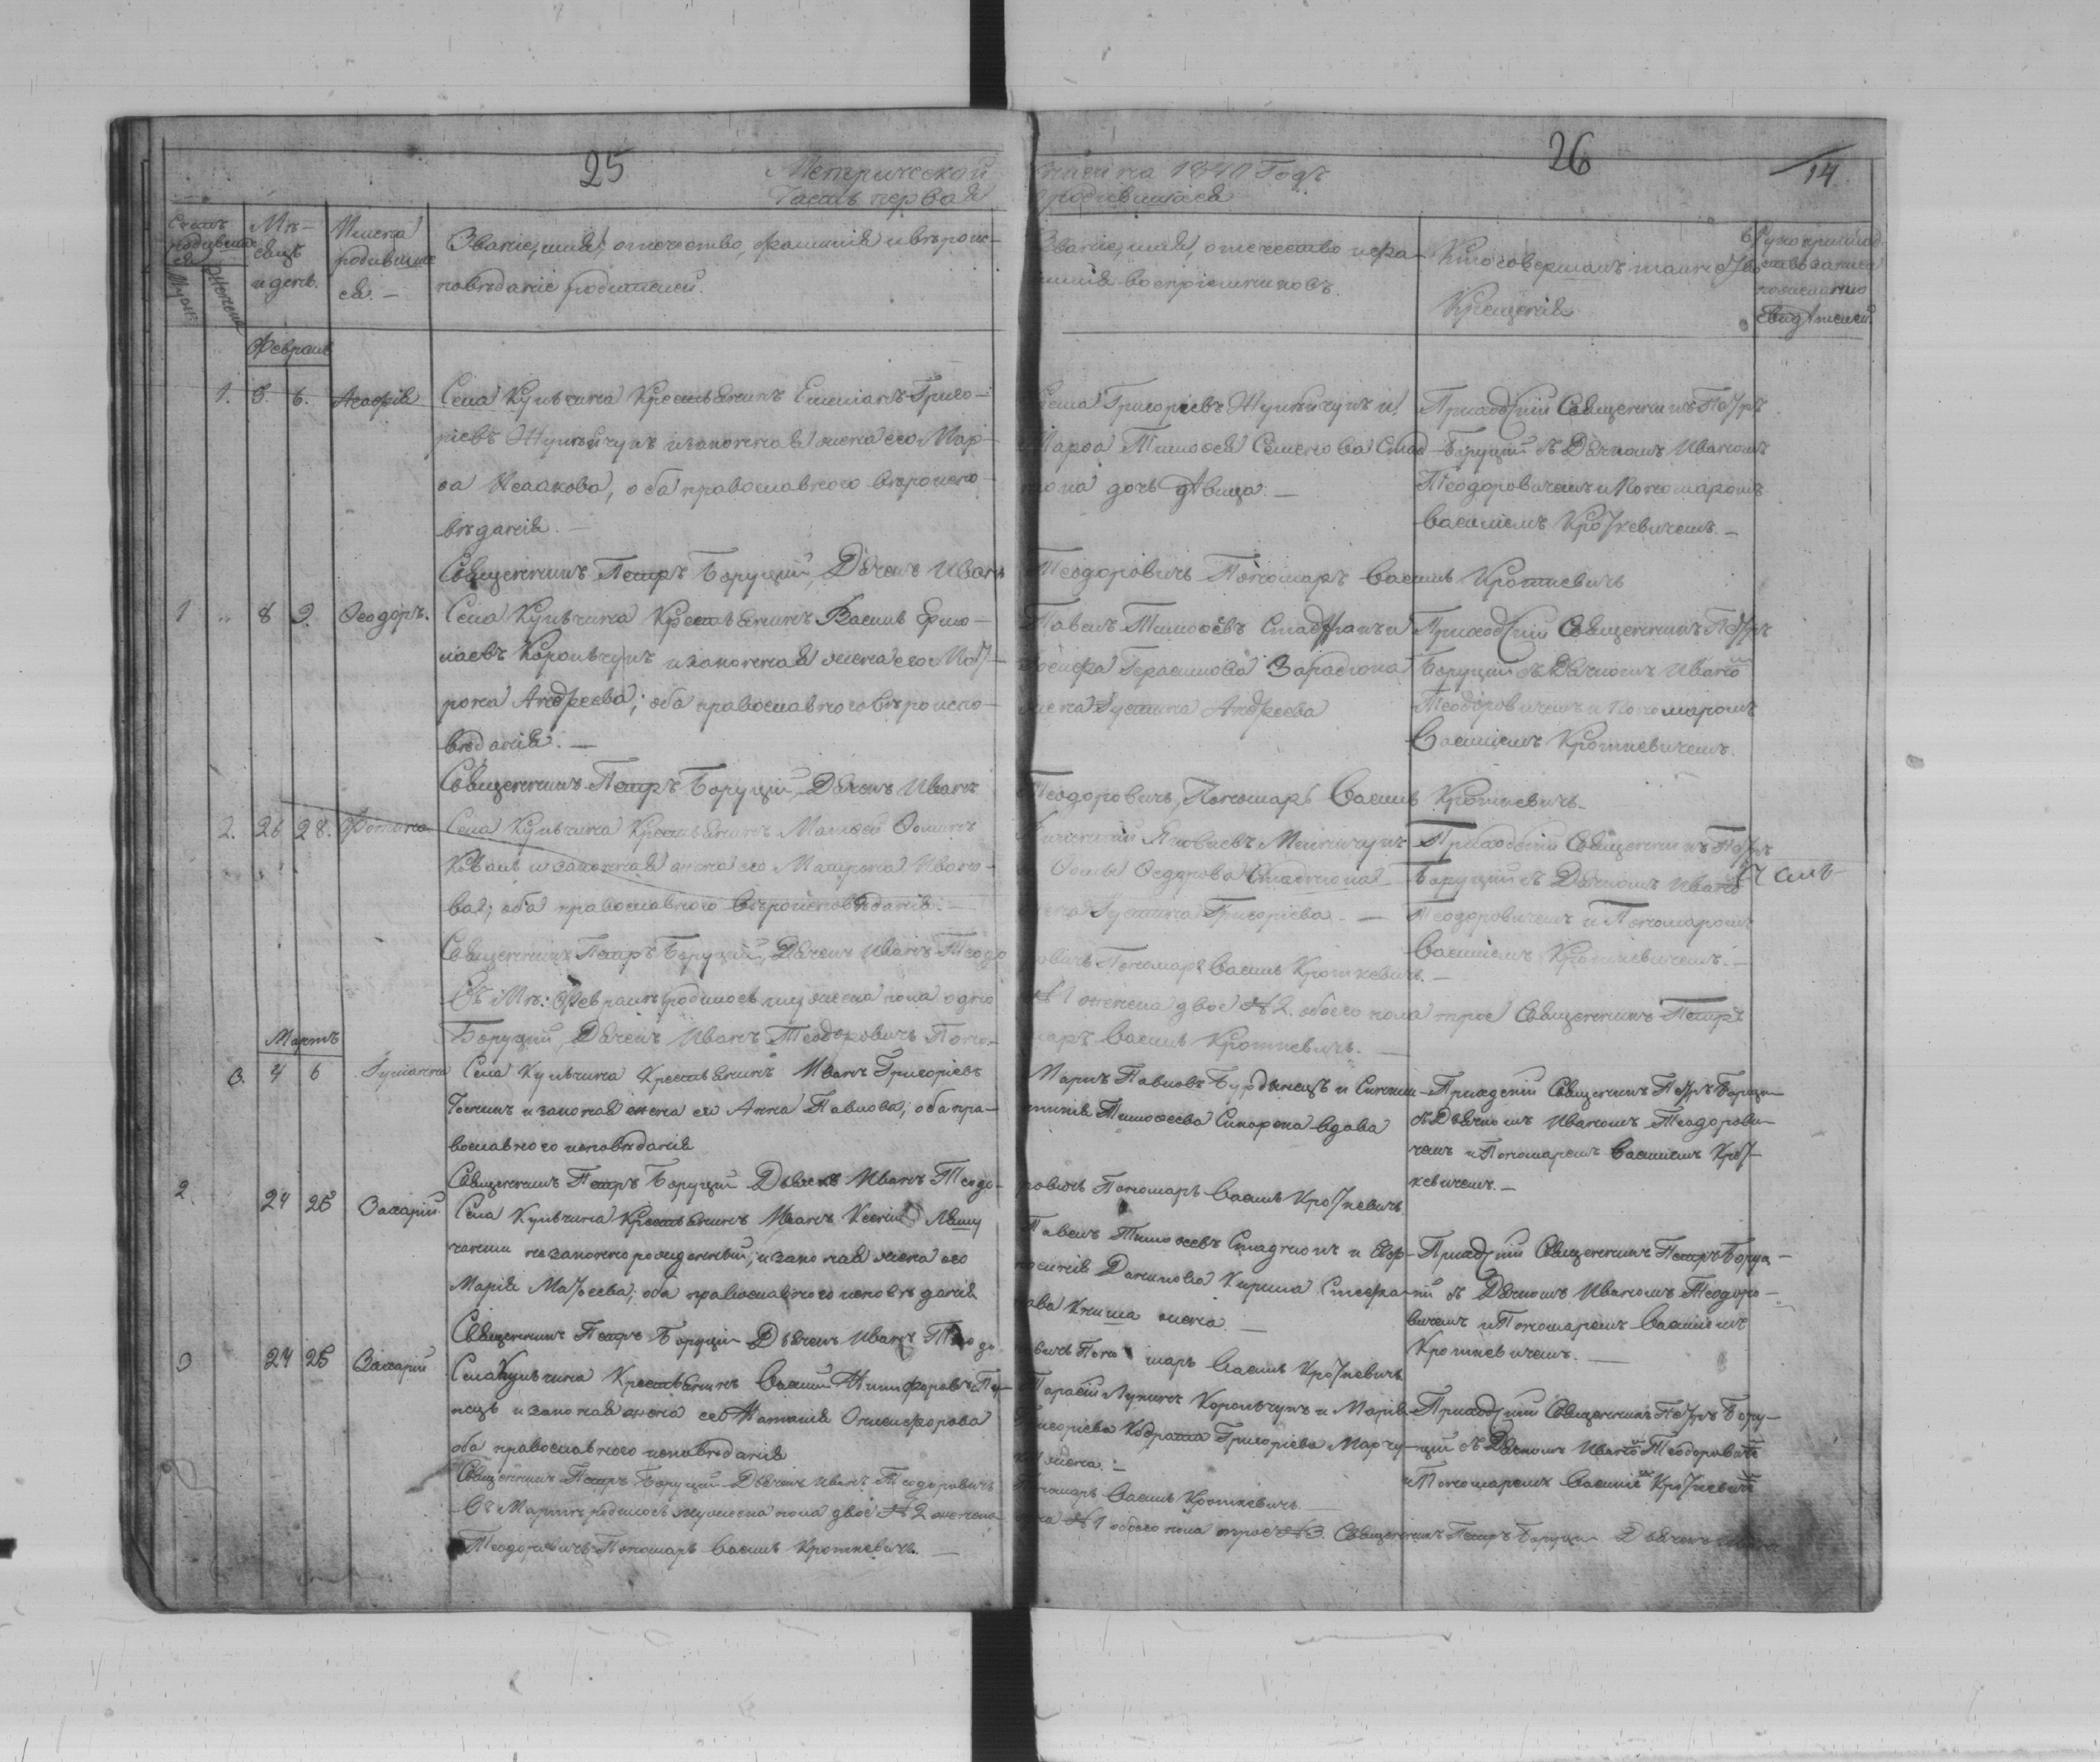 25
26
14
Метрической
Часть первая
книги на 1840 Годъ
родившихся
Счетъ родивших ся
Муж:
Женска
Мѣ-
сяцъ
и день.
Имена
родивших
ся. —
Званіе, имя, отечество, фамилія и вѣроис-
повѣданіе родителей.
Званіе, имя, отечество и фа-
милія воспріемниковъ.
Кто совершалъ таинство
Крещенія
Февраль
1. 5. 6. Агафія
Села Кульчина Крестьянинъ Емиліанъ Григо-
ріевъ и законная жена его Мар-
ѳа Исаакова, оба православного вѣроиспо-
вѣданія. —
Григорьевъ и
Марѳа Тимоѳея Семенова Стад
нюка дочь дѣвица. —
Приходскій Священникъ Петръ
Боруцкій съ Дьячкомъ Иваномъ
Теодоровичемъ и Пономаромъ
Василіемъ Кроткевичемъ. —
Священникъ Петръ Боруцкій, Дьячекъ Иванъ
Теодоровичъ Пономаръ Василь Кроткевичъ
1 „ 8 9. Ѳеодоръ.
Села Кульчина Крестьянинъ Василь Ермо-
лаевъ Корольчукъ и законная жена его Мат-
рона Андреева; оба православного вѣроиспо-
вѣданія. —
Павелъ Тимоѳеевъ Стаднюкъ и
Гераси­мова
жена Густина Андреева
Приходскій Священникъ Петръ
Боруцкій съ Дьячкомъ Ивано
Теодоровичемъ и Пономаромъ
Василіемъ Кроткевичемъ.
Священникъ Петръ Боруцкій, Дьячекъ Иванъ
Теодоровичъ, Пономаръ Василь Кроткевичъ.
2. 26 28. Фотина
Села Кульчина Крестьянинъ Матѳей Ѳоминъ
Коваль и законная жена его Матрона Ивано-
ва; оба православного вѣроисповѣданія. —
Яковлевъ Мельничукъ
Ѳомы Ѳедорова Стаднюка
жена Густина Григоріева. —
Приходскій Священникъ Петръ
Боруцкій съ Дьячкомъ Ивано
Теодоровичемъ и Пономаромъ
Василіемъ Кроткевичемъ. —
Священникъ Петръ Боруцкій, Дьячекъ Иванъ Теодо
ровичъ Пономаръ Василь Кроткевичъ. —
Въ Мѣ: Февралѣ родилось мужеска пола одно
№ 1 женска двое № 2. обоего пола трое Священникъ Петръ
Боруцкій, Дьячекъ Иванъ Теодоровичъ Поно-
маръ Василь Кроткевичъ. —
Мартъ
3. 4 6 Гуліанна
Села Кульчина Крестьянинъ Иванъ Григоріевъ
и законая жена его Анна Павлова; оба пра-
вославного исповѣданія
Маркъ Павловъ и
Тимоѳеева вдова
Приходскій Священникъ Петръ Боруцкій
съ Дьячкомъ Иваномъ Теодорови-
чемъ и Пономаремъ Василіемъ Крот-
кевичемъ. —
Священникъ Петръ Боруцкій Дьячекъ Иванъ Теодо-
ровичъ Пономаръ Василь Кроткевичъ
2. 24 25 Захарій
Села Кульчина Крестьянинъ Иванъ
незаконнорожденный; и законая жена его
Марія Матѳеева; оба православного исповѣданія
Павелъ Тимоѳеевъ Стаднюкъ и Евф-
росинія Данилова Кирила Стефа-
нова жена. —
Приходскій Священникъ Петръ Боруц-
кій съ Дьячкомъ Иваномъ Теодоро-
вичемъ и Пономаремъ Василіемъ
Кроткевичемъ. —
Священникъ Петръ Боруцкій Дьячекъ Иванъ Теодо
ровичъ Пономаръ Василь Кроткевичъ
3 24 25 Захарій
Села Кульчина Крестьянинъ Василій Никифоровъ
и законая жена его Наталія Онисифорова
оба православного исповѣданія
Тарасій Лукинъ Корольчукъ и Марія
Григоріева Кодрата Григоріева Марчу-
ка жена. —
Приходскій Священникъ Петръ Бору-
цкій съ Дьячкомъ Ивано Теодорови
и Пономаремъ Василіе Кроткеви
Священникъ Петръ Боруцкій Дьячекъ Иванъ Теодоровичъ
Пономаръ Василь Кроткевичъ. —
Въ Мартѣ родилось мужеска пола двое № 2 женска
одна № 1 обоего пола трое № 3. Священникъ Петръ Боруцкій Дьячекъ Иванъ
Теодоровичъ Пономаръ Василь Кроткевичъ. —